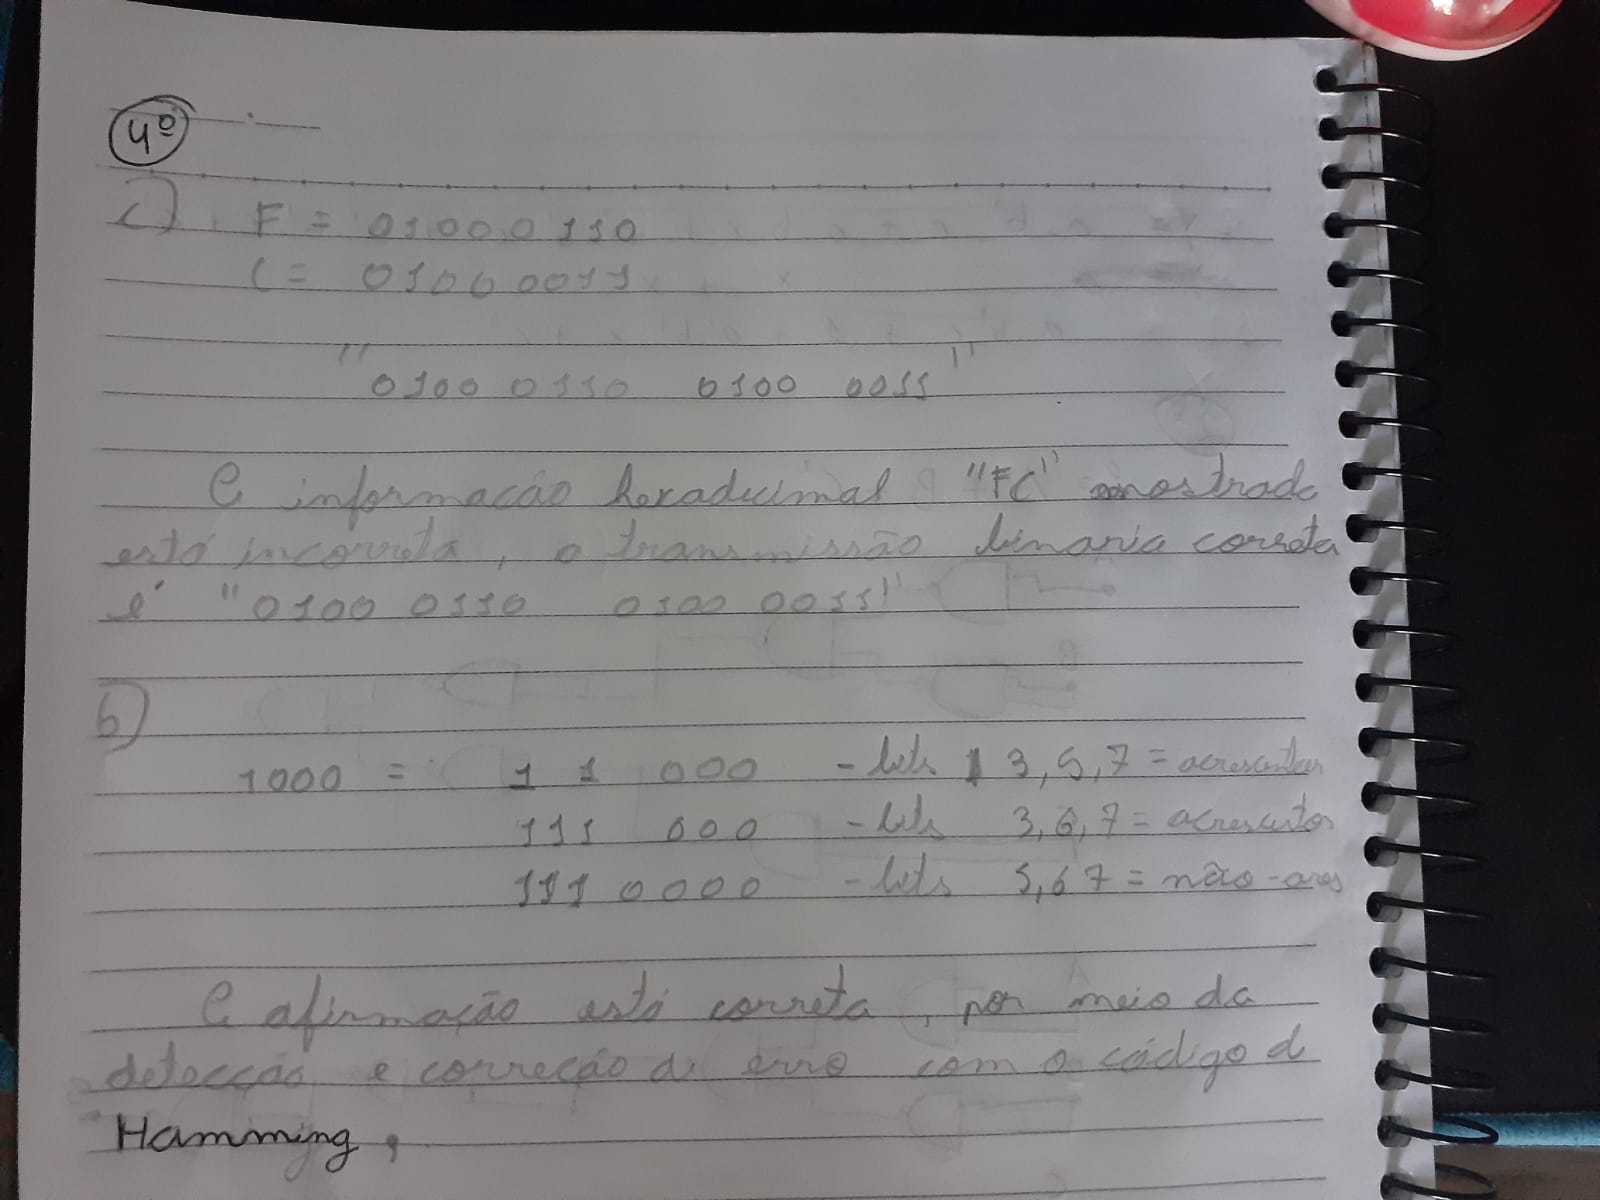 4º
c) F = 01000110
C = 01000011
" 0100 0110 0100 0011 "
A informação hexadecimal "FC" mostrada
está incorreta, a transmissão binaria correta
é "0100 0110 0100 0011"
b)
1000 = 1 1 000 - bits 3,5,7 = acrescentar
111 000 - bits 3,6,7 = acrescentar
111 0000 - bits 5,6 7 = não-acres
A afirmação está correta, por meio da
detecção e correção de erro com o código d
Hamming,